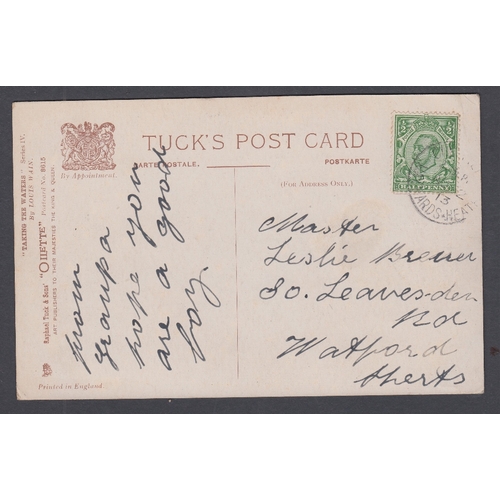 TUCK'S POST CARD
CARTE POSTALE.
POSTKARTE
(FOR ADDRESS ONLY.)
By Appointment.
"TAKING THE WATERS" Series IV.
By LOUIS WAIN.
Raphael Tuck & Sons' "OILETTE" Postcard No. 8615
ART PUBLISHERS TO THEIR MAJESTIES THE KING & QUEEN.
Printed in England.
from
granpa
hope you
are a good
boy.
HALFPENNY
13
ARDS-HEATH
Master
Leslie
80. Leavesden
Rd
Watford
Herts